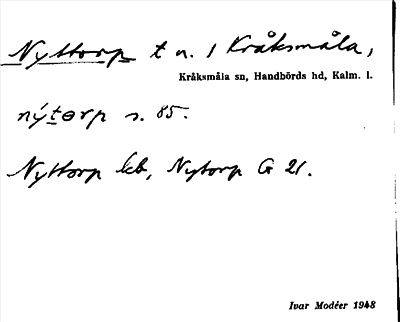 Nyttorp t n. 1 Kråksmåla,
Kråksmåla sn, Handbörds hd, Kalm. l.
nýtorp s. 85.
Nyttorp kb, Nytorp G 21.
Ivar Modéer 1948